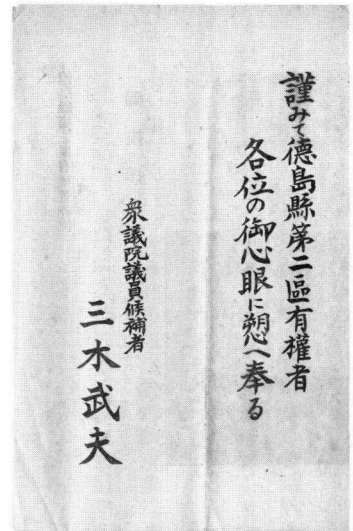 謹みて徳島縣第二區有權者
各位の御心眼に愬へ奉る
衆議院議員候補者
三木武夫